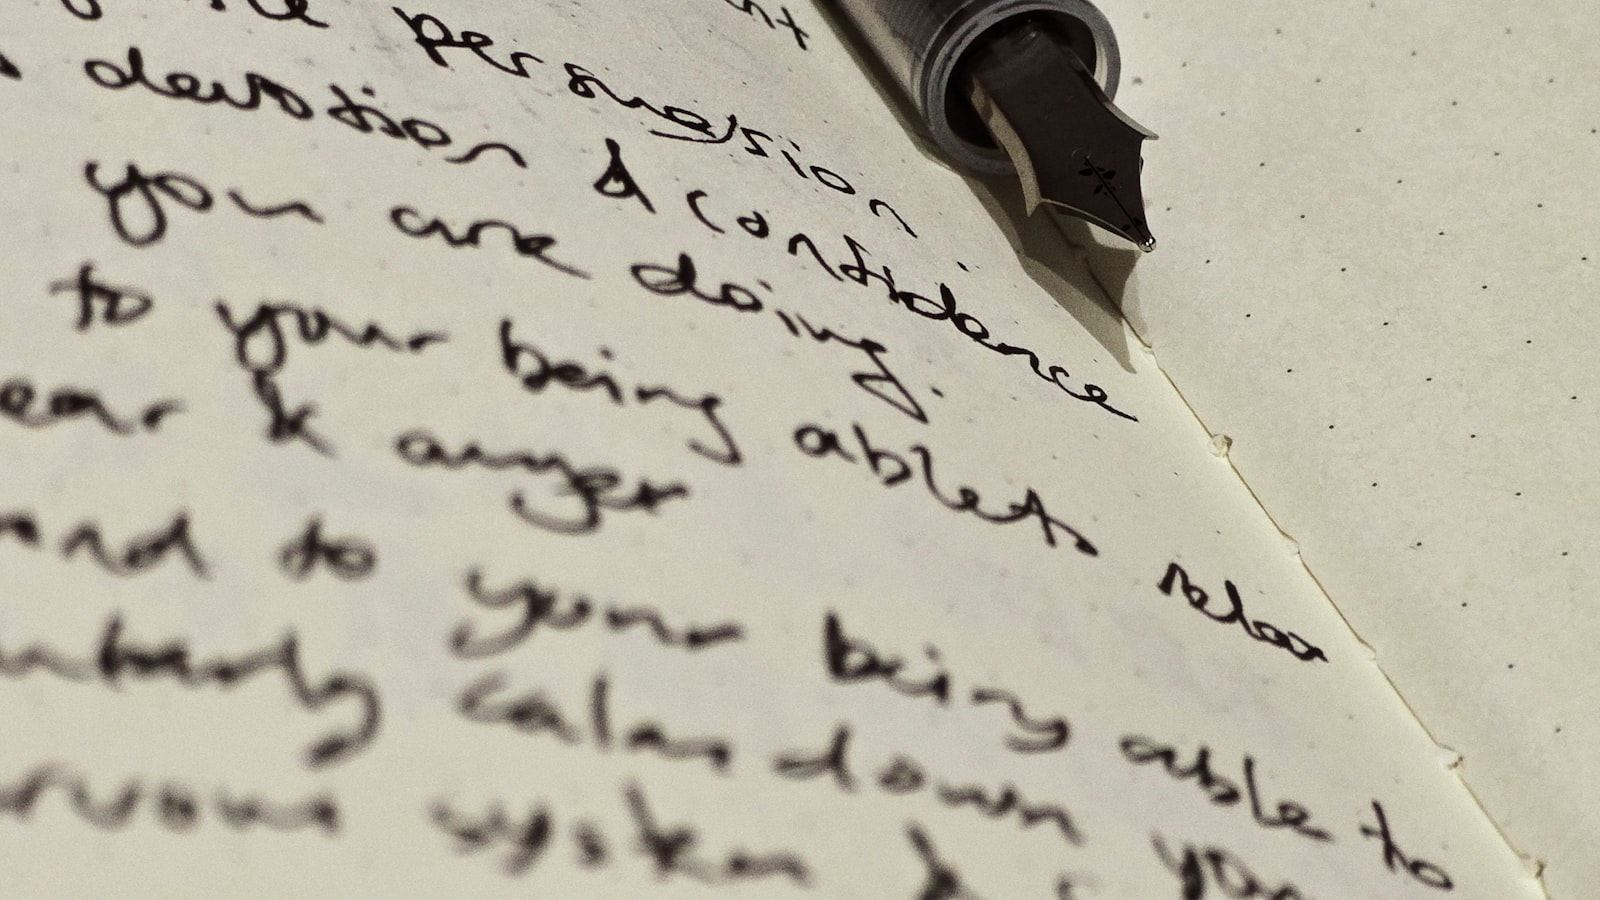 persuasion
devotion & confidence
you are doing.
to your being able to relax
ear & anger
and to your being able to
calm down you
system